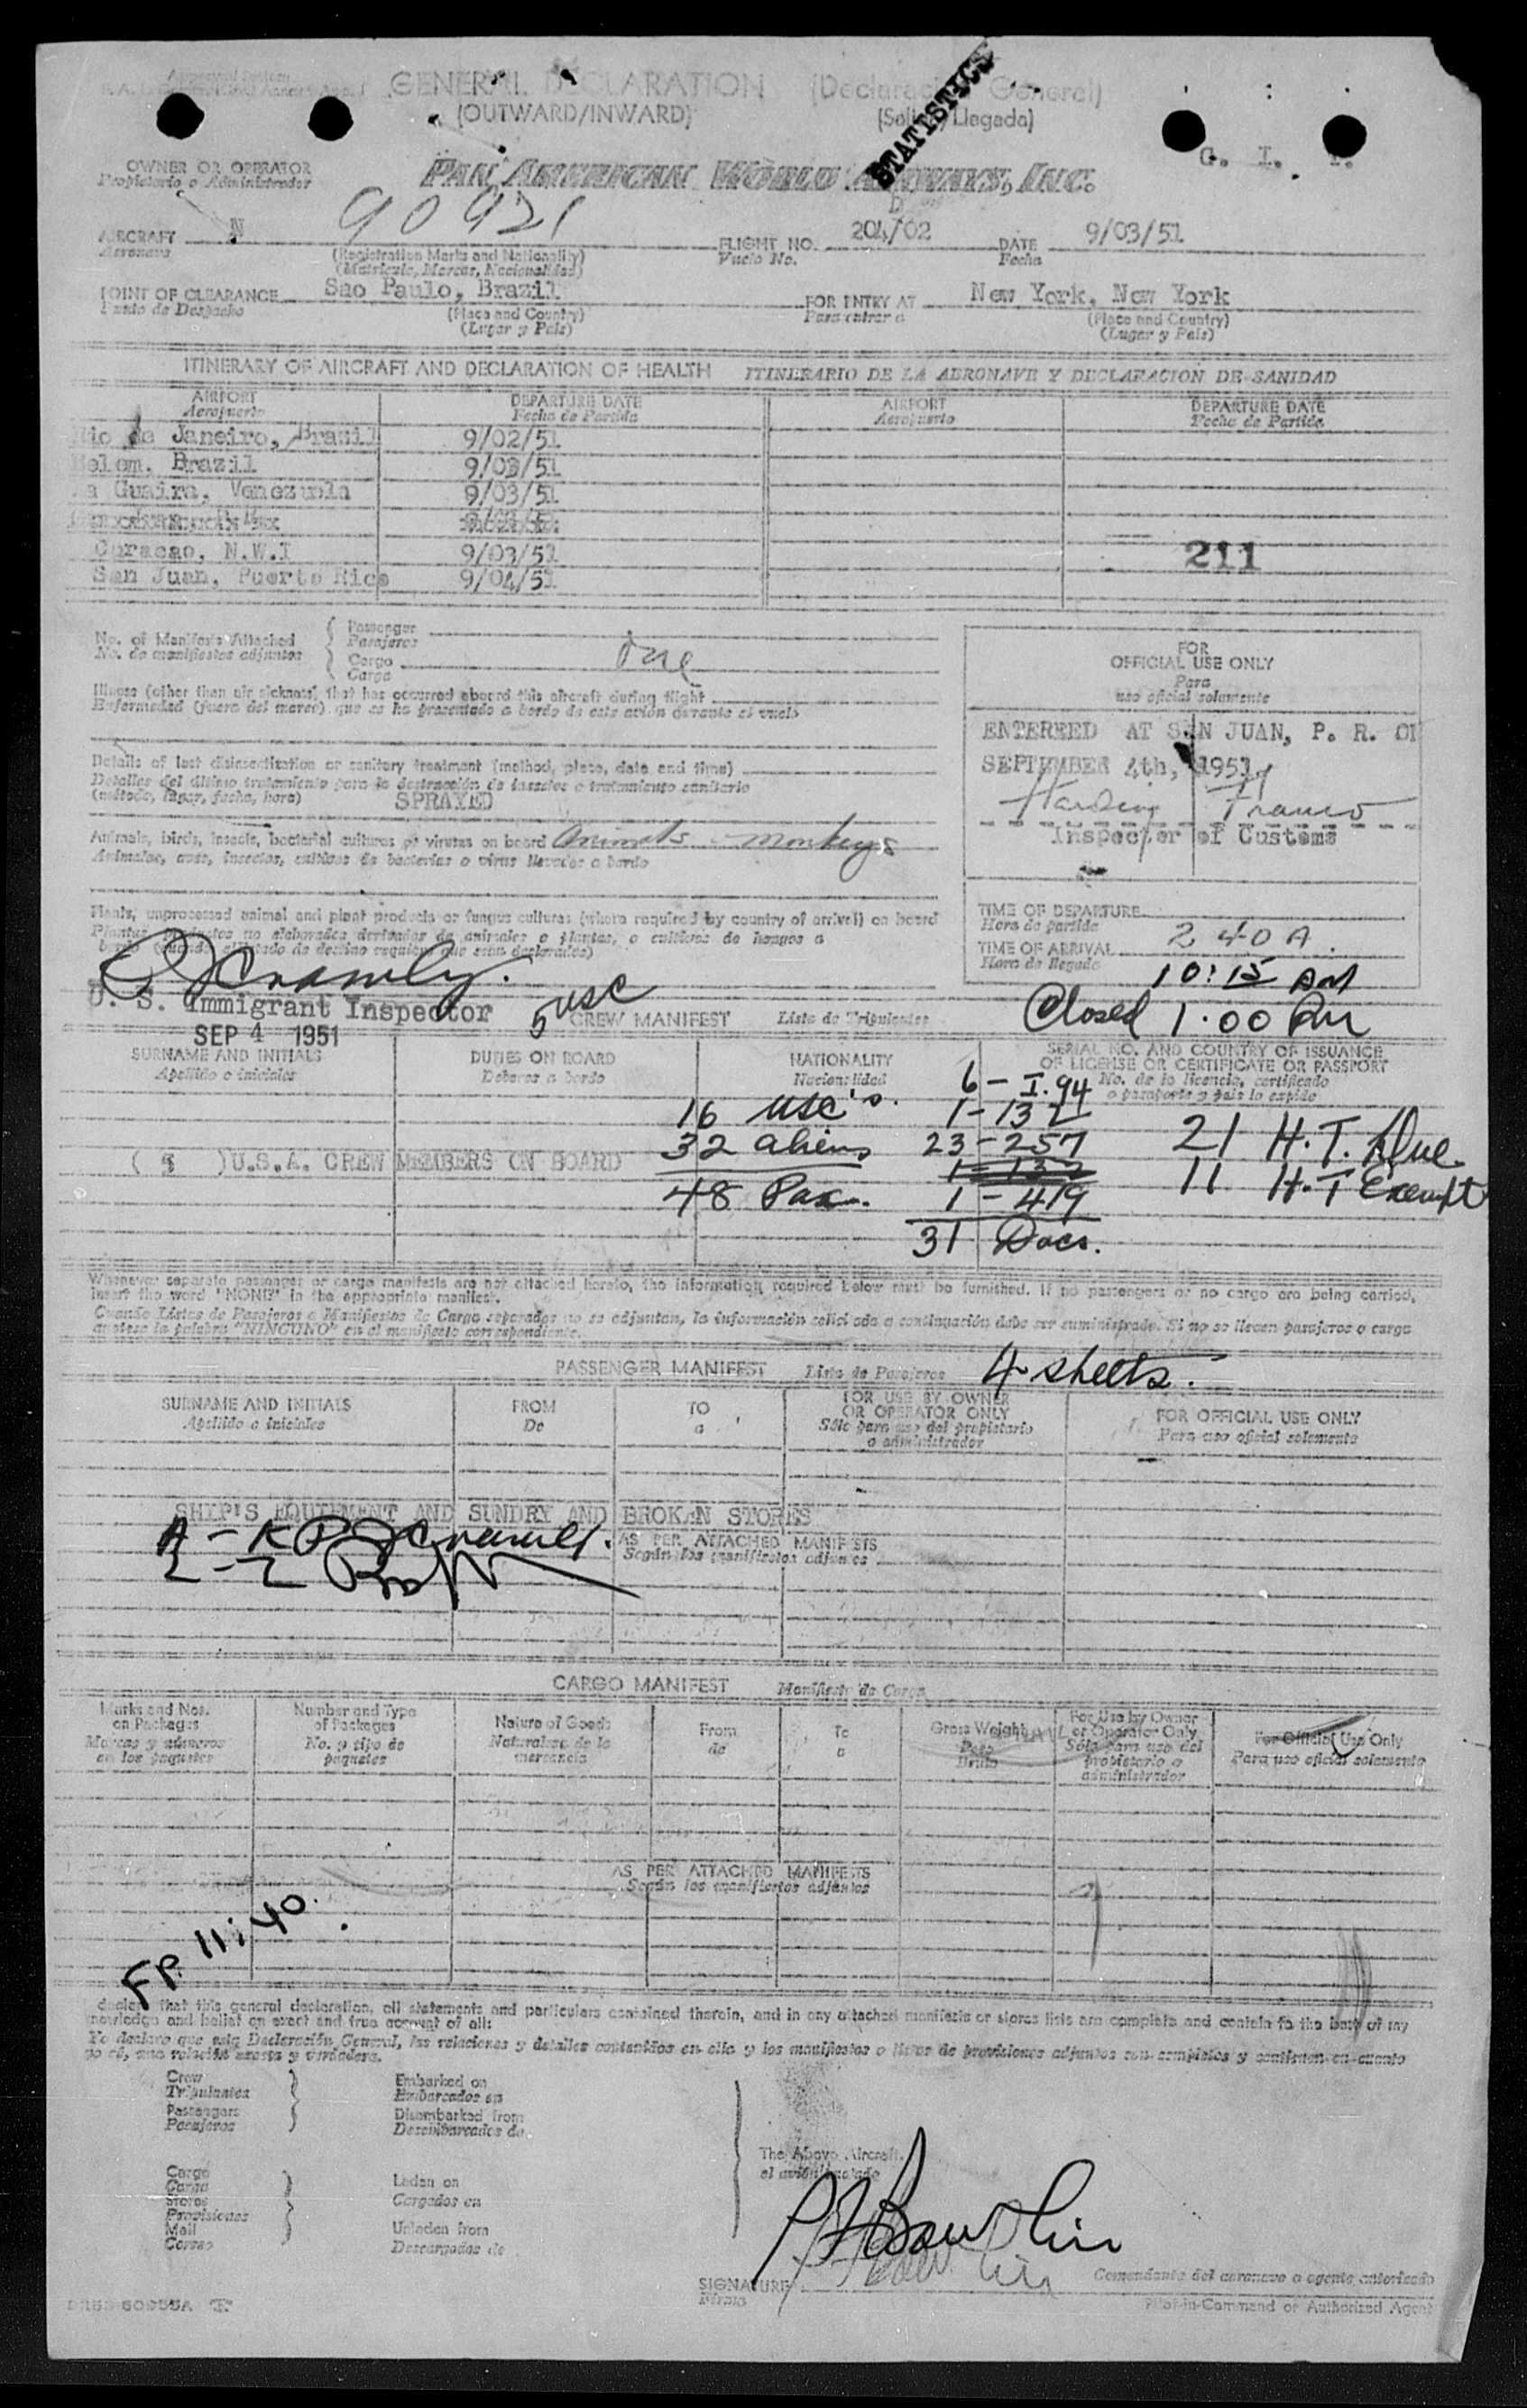 GENERAL DECLARATION (Declaración General)
(OUTWARD/INWARD) (Salida/Llegada)
STATISTICS
G. I.
OWNER OR OPERATOR PAN AMERICAN WORLD AIRWAYS, INC.
Propietario o Administrador
AIRCRAFT N 90921 FLIGHT NO. 204/02 DATE 9/03/51
Aeronave (Registration Marks and Nationality) Vuelo No. Fecha
(Matricula, Marcas, Nacionalidad)
POINT OF CLEARANCE Sao Paulo, Brazil FOR ENTRY AT New York, New York
Punto de Despacho (Place and Country) Para entrar a (Place and Country)
(Lugar y País) (Lugar y País)
ITINERARY OF AIRCRAFT AND DECLARATION OF HEALTH ITINERARIO DE LA AERONAVE Y DECLARACION DE SANIDAD
AIRPORT DEPARTURE DATE AIRPORT DEPARTURE DATE
Aeropuerto Fecha de Partida Aeropuerto Fecha de Partida
Rio de Janeiro, Brazil 9/02/51
Belem. Brazil 9/03/51
La Guaira, Venezuela 9/03/51
Curacao, N.W.I 9/03/51
211
San Juan, Puerto Rico 9/04/51
No. of Manifests Attached Passenger
No. de manifiestos adjuntos Pasajeros
Cargo One
Carga
FOR
OFFICIAL USE ONLY
Para
uso oficial solamente
Illness (other than air sickness) that has occurred aboard this aircraft during flight
Enfermedad (fuera del mareo) que se ha presentado a bordo de este avión durante el vuelo
ENTEREED AT SAN JUAN, P. R. ON
SEPTEMBER 4th, 1951
Inspector of Customs
Details of last disinsectization or sanitary treatment (method, place, date and time)
Detalles del último tratamiento para la destrucción de insectos o tratamiento sanitario
(método, lugar, fecha, hora) SPRAYED
Animals, birds, insects, bacterial cultures or viruses on board Animals - monkeys
Animales, aves, insectos, cultivos de bacterias o virus llevados a bordo
Plants, unprocessed animal and plant products or fungus cultures (where required by country of arrival) on board
Plantas, productos no elaborados derivados de animales o plantas, o cultivos de hongos a
bordo (cuando el estado de destino requiera que sean declarados)
TIME OF DEPARTURE 2 40 A.
Hora de partida
TIME OF ARRIVAL 10:15 AM
Hora de llegada
U. S. Immigrant Inspector 5 USC
SEP 4 1951
CREW MANIFEST Lista de Tripulantes Closed 1:00 Pm
SURNAME AND INITIALS DUTIES ON BOARD NATIONALITY SERIAL NO. AND COUNTRY OF ISSUANCE
OF LICENSE OR CERTIFICATE OR PASSPORT
Apellido e iniciales Deberes a bordo Nacionalidad No. de la licencia, certificado
o pasaporte y país lo expide
6 - I.94
16 USC's. 1 - 132
32 aliens 23 - 257 21 H.T. Due.
( 5 ) U.S.A. CREW MEMBERS ON BOARD 1 - 132
48 Pax. 1 - 419 11 H.T Exempt
31 Docs.
Whenever separate passenger or cargo manifests are not attached hereto, the information required below must be furnished. If no passengers or no cargo are being carried,
insert the word "NONE" in the appropriate manifest.
Cuando Listas de Pasajeros o Manifiestos de Carga separados no se adjuntan, la información solicitada a continuación debe ser suministrada. Si no se llevan pasajeros o carga
anótese la palabra "NINGUNO" en el manifiesto correspondiente.
PASSENGER MANIFEST Lista de Pasajeros 4 sheets.
SURNAME AND INITIALS FROM TO FOR USE BY OWNER OR OPERATOR ONLY FOR OFFICIAL USE ONLY
Apellido e iniciales De a Sólo para uso del propietario o administrador Para uso oficial solamente
SHIP'S EQUIPMENT AND SUNDRY AND BROKEN STORES
A - K
AS PER ATTACHED MANIFESTS
Según los manifiestos adjuntos
L - Z
CARGO MANIFEST Manifiesto de Carga
Marks and Nos. on Packages Number and Type of Packages Nature of Goods From To Gross Weight For Use by Owner or Operator Only For Official Use Only
Marcas y números en los paquetes No. y tipo de paquetes Naturaleza de la mercancía de a Peso Bruto Sólo para uso del propietario o administrador Para uso oficial solamente
AS PER ATTACHED MANIFESTS
Según los manifiestos adjuntos
FP. 11:40.
declare that this general declaration, all statements and particulars contained therein, and in any attached manifests or stores lists are complete and contain to the best of my
knowledge and belief an exact and true account of all:
Yo declaro que esta Declaración General, las relaciones y detalles contenidos en ella y los manifiestos o listas de provisiones adjuntos son completos y contienen en cuanto
yo sé, una relación exacta y verdadera.
Crew Embarked on
Tripulantes Embarcados en
Passengers Disembarked from
Pasajeros Desembarcados de
The Above Aircraft.
Cargo Laden on
Carga Cargados en
Stores
Provisiones
Mail Unladen from
Correo Descargados de
SIGNATURE Comandante del aeronave o agente autorizado
Firma
Pilot-in-Command or Authorized Agent